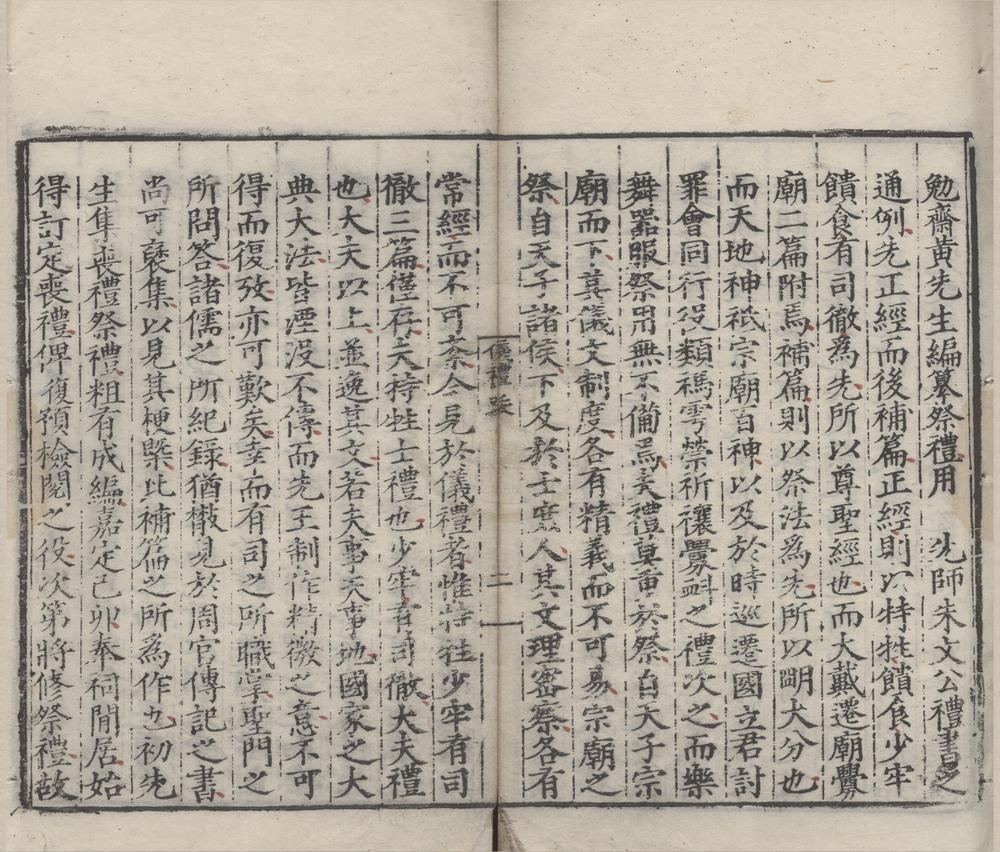 勉齋黃先生編纂祭禮用 先師朱文公禮書之
通例先正經而後補篇正經則以特牲饋食少牢
饋食有司徹為先所以尊聖經也而大戴遷廟釁
廟二篇附焉補篇則以祭法為先所以明大分也
而天地神祇宗廟百神以及於時巡遷國立君討
罪會同行役類禡雩禜祈禳釁衈之禮次之而樂
舞器服祭用無不備焉夫禮莫重於祭自天子宗
廟而下其儀文制度各有精義而不可易宗廟之
祭自天子諸侯下及於士庶人其文理密察各有
儀禮
二
常經而不可紊今見於儀禮者惟特牲少牢有司
徹三篇僅存夫特牲士禮也少牢有司徹大夫禮
也大夫以上並逸其文若夫事天事地國家之大
典大法皆湮沒不傳而先王制作精微之意不可
得而復攷亦可歎矣幸而有司之所職掌聖門之
所問答諸儒之所紀錄猶散見於周官傳記之書
尚可裒集以見其梗槩此補篇之所為作也初先
生集喪禮祭禮粗有成編嘉定己卯奉祠閒居始
得訂定喪禮俾復預檢閱之役次第將修祭禮故